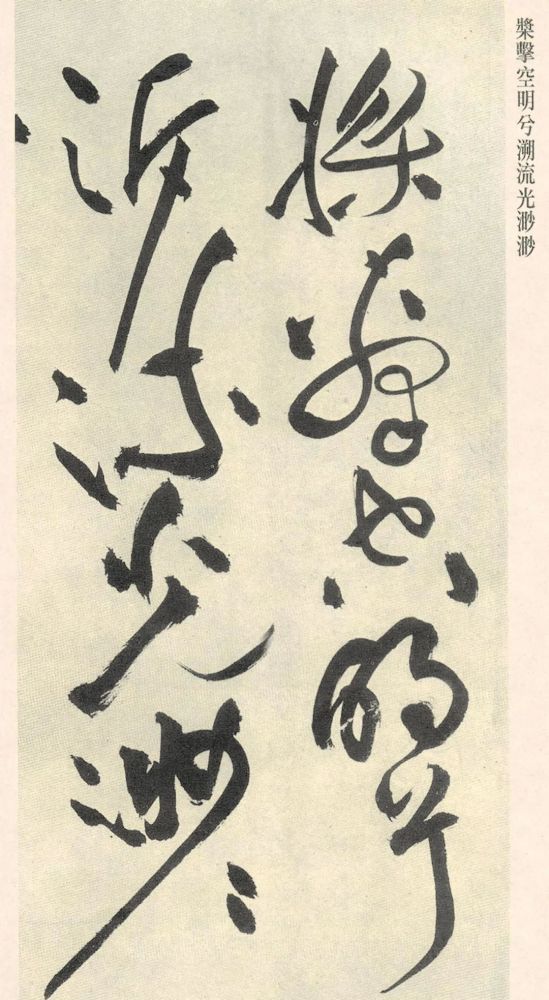 槳擊空明兮溯流光渺渺
槳擊空明兮
泝流光渺〻